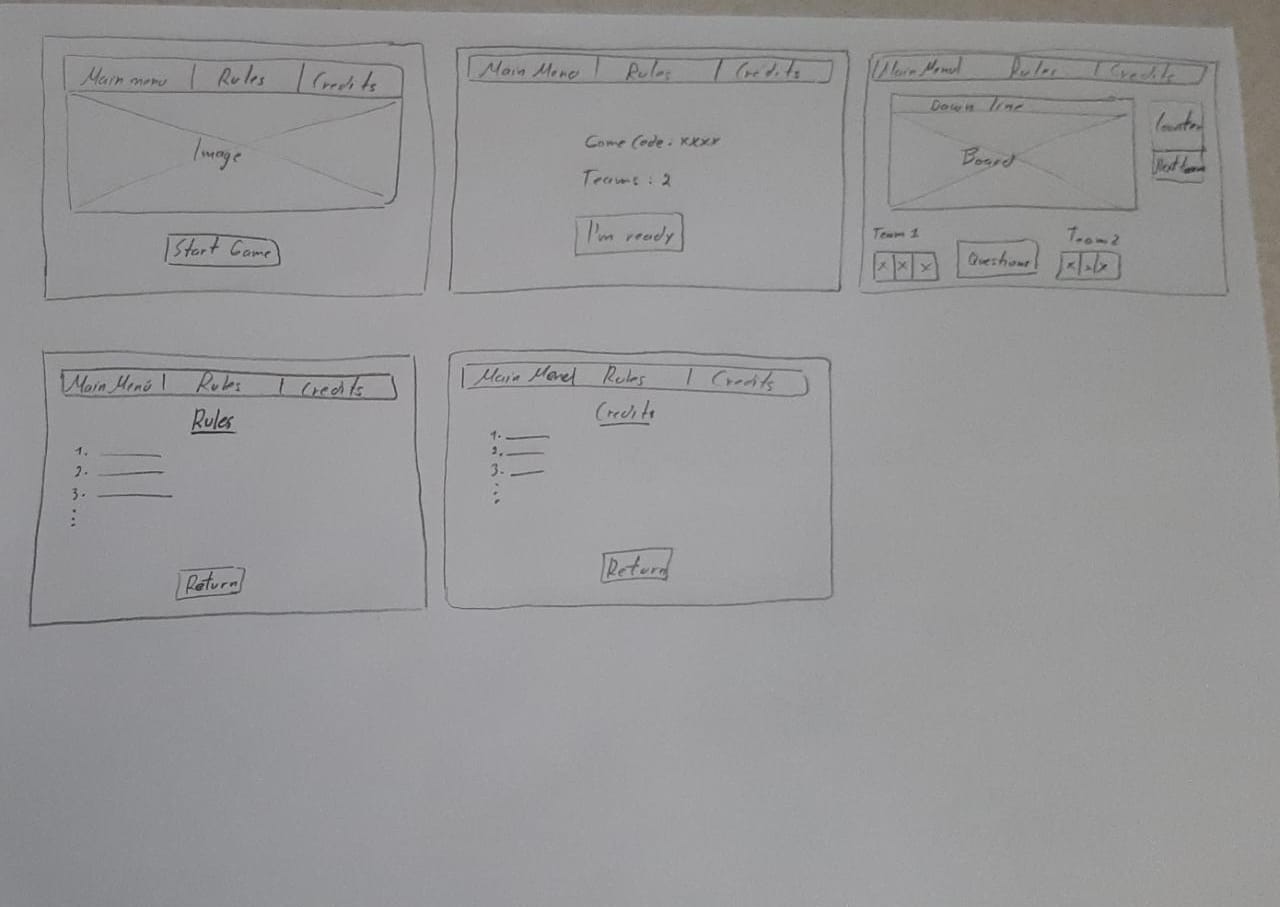 Main menu | Rules | Credits
Image
Start Game
Main Menu | Rules | Credits
Game Code: xxxx
Teams: 2
I'm ready
Main Menu | Rules | Credits
Down line
Board
Counter
Next team
Team 1
Team 2
x x x
Questions
x x x
Main Menú | Rules | Credits
Rules
1.
2.
3.
Return
Main Menu | Rules | Credits
Credits
1.
2.
3.
Return